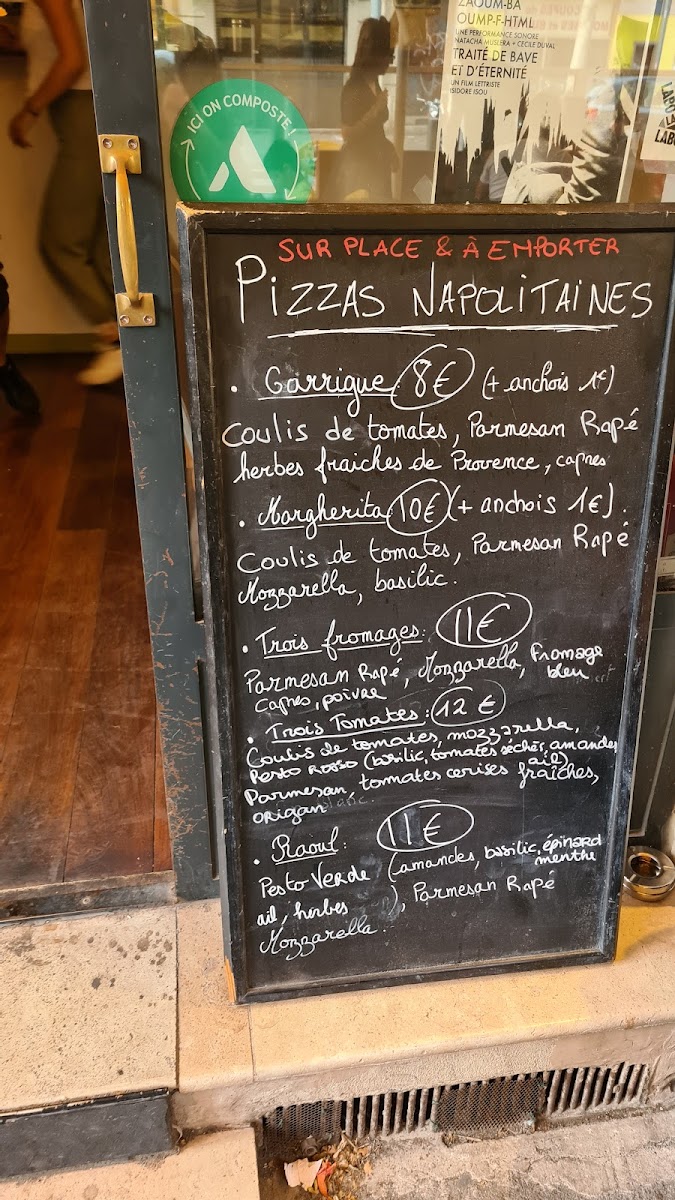 ZAOUM-BA
OUMP-F-HTML
UNE PERFORMANCE SONORE
NATACHA MUSLERA + CECILE DUVAL
TRAITÉ DE BAVE
ET D'ÉTERNITÉ
UN FILM LETTRISTE
ISIDORE ISOU
ICI ON COMPOSTE !
SUR PLACE & À EMPORTER
PIZZAS NAPOLITAINES
. Garrigue : 8€ (+ anchois 1€)
Coulis de tomates, Parmesan Rapé
herbes fraiches de Provence, capres
. Margherita 10€ (+ anchois 1€).
Coulis de tomates, Parmesan Rapé
Mozzarella, basilic.
. Trois fromages : 11€
Parmesan Rapé, Mozzarella, Fromage bleu
Capres, poivre
. Trois Tomates : 12 €
Coulis de tomates, mozzarella,
Pesto Rosso (basilic, tomates séchés, amandes, ail),
Parmesan, tomates cerises fraîches,
origan
. Raoul : 11€
Pesto Verde (amandes, basilic, épinard menthe
ail, herbes ), Parmesan Rapé
Mozzarella.